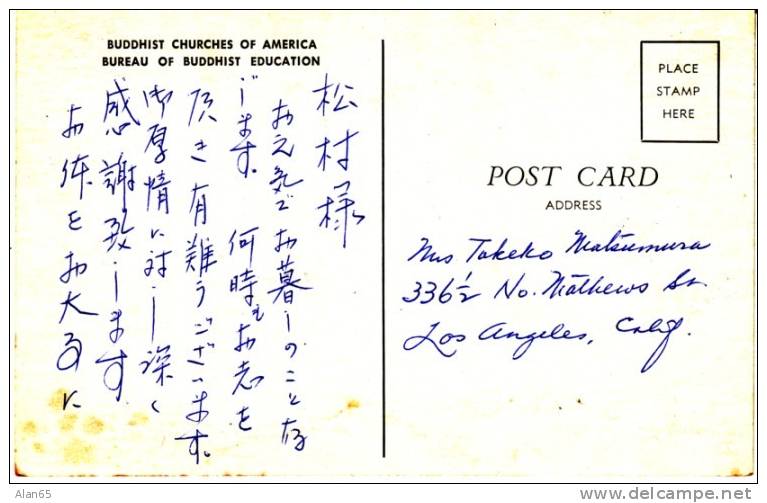 BUDDHIST CHURCHES OF AMERICA
BUREAU OF BUDDHIST EDUCATION
松村様
お元気でお暮しのことな
じます。何時もお志を
頂き有難うございます。
御厚情に対し深く
感謝致します
お体をお大事に
PLACE
STAMP
HERE
POST CARD
ADDRESS
Mrs Takeko Matsumura
336½ No. Mathews St.
Los Angeles, Calif.
Alan65
www.delcampe.net